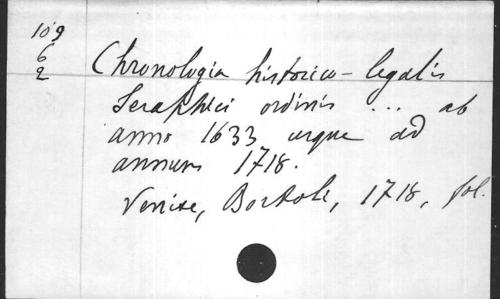 109
6
2
Chronologia historico-legalis
Seraphici ordinis ... ab
anno 1633 usque ad
annum 1718.
Venise, Bortoli, 1718, fol.